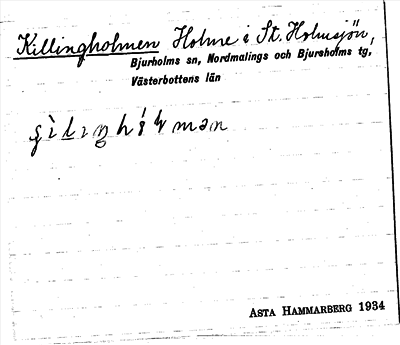 Killingholmen Holme i St. Holmsjön,
Bjurholms sn, Nordmalings och Bjurholms tg,
Västerbottens län
ASTA HAMMARBERG 1934